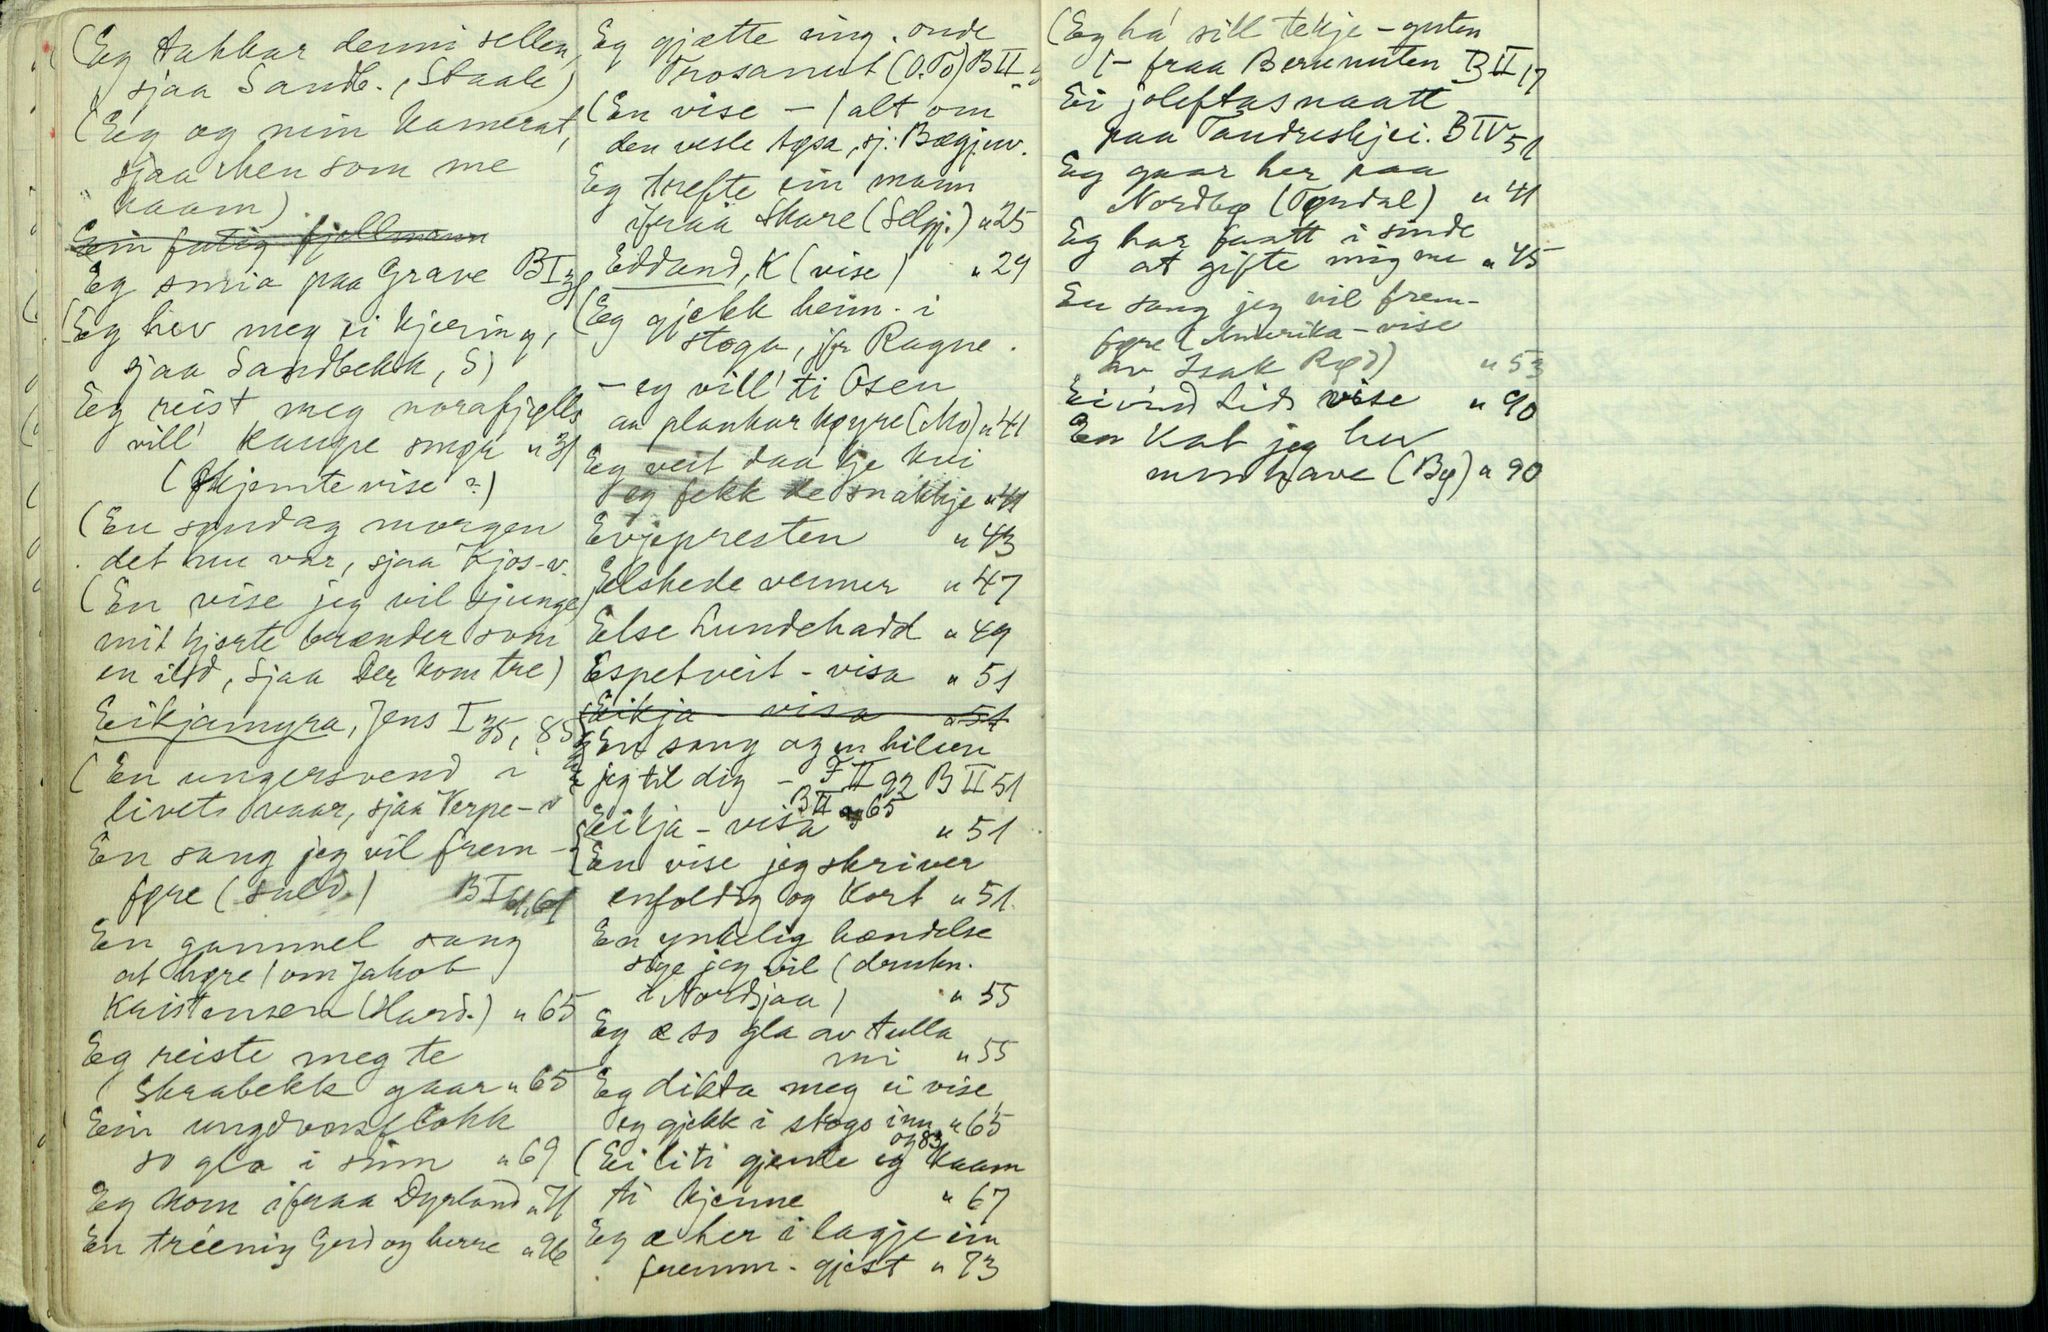 (Eg takkar denni sellen,
sjaa Sandb., Staale)
(Eg og min kamerat,
sjaa
som me
kaam)
Ein fatig fjellmann
Eg smia paa Grave BI 31
(Eg hev meg ei kjering,
sjaa Sandbekk, S)
Eg reist meg norafjells
vill' kaupe smør " 31
(Skjemtevise?)
(En søndag morgen
det nu var, sjaa Kjos-v.
(En vise jeg vil sjunge,
mit hjerte brænder som
en ild, sjaa Der kom tre)
Eikjamyra, Jens I 35, 85
(En ungersvend i
livets vaar, sjaa Verpe-v
En sang jeg vil frem-
føre (suld.) BI 61, 61
En gammel sang
at høre / om Jakob
Kristensen (Hard.) " 65
Eg reiste meg te
Skrabekk gaar " 65
Ein ungdomsflokk
so gla i sinn " 69
Eg kom ifraa Dyrland " 71
En treenig Gud og herre " 96
Eg gjætte eing. onde
Trosanut (O.Tø) BII
(En vise — / alt om
den vesle tøsa, sj. Bægjuv.
Eg trefte ein mann
ifraa Skare (Selgj.) " 25
Eddand, K (vise) " 29
(Eg gjekk heim. i
stoga, jfr Ragne.
— eg vill' ti Osen
aa plankar køyre (Mo) " 41
Eg veit daa kje kvi
eg fekk de snakkje " 41
Evjepresten " 43
Elskede venner " 47
Else Lundehadd " 49
Espetveit-visa " 51
Eikja-visa " 51
En sang og en hilsen
jeg til dig — FII 92 BII 51
BII 65
Eikja-visa " 51
En vise jeg skriver
enfoldig og kort " 51
En ynkelig hændelse
sige jeg vil (drukn.
i Nordsjaa) " 55
Eg æ so gla av tulla
mi " 55
Eg dikta meg ei vise,
eg gjekk i stogo inn " 65
og 83
(Ei liti gjente eg kaam
ti kjenne " 67
Eg æ her i lagje ein
fremm. gjest " 73
(Eg ha' sill tekje-guten
/- fraa Berunuten BII 17
Ei joleftasnaatt
paa Tandreskjei. BIV 51
Eg gaar her paa
Nordbø (Tørdal) " 41
Eg har faatt i sinde
at gifte mig nu " 45
En sang jeg vil frem-
føre (Amerika-vise
av Isak Rød) " 53
Eivind Lids vise " 90
En kat jeg hev
min have (Bø) " 90